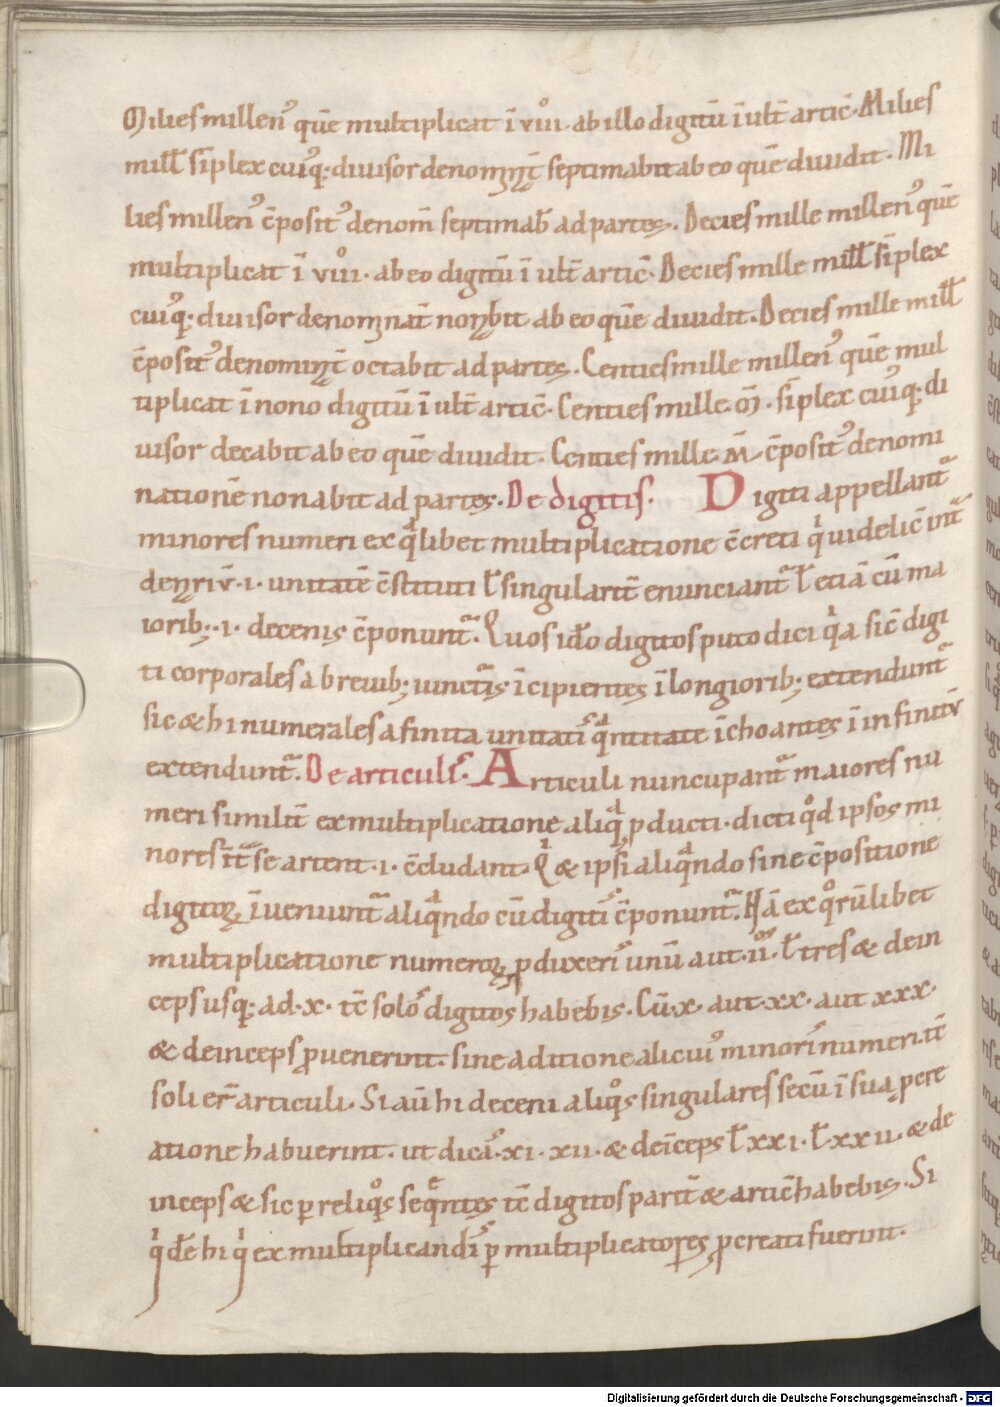 Milies millen᷒ quē multiplicat ī viii. ab illo digitū ī ult̄ artic̄. Milies
mill̄ sīplex cuiq; diuisor denomn̄t̄ septimabit ab eo quē diuidit. Mi
lies millen᷒ c̄posit᷒ denom̄ septimab̄ ad partes. Decies mille millen᷒ quē
multiplicat ī viiii. ab eo digitū ī ult̄ artic̄. Decies mille mill̄ sīplex
cuiq; diuisor denominat̄ nonabit ab eo quē diuidit. Decies mille mill̄
c̄posit᷒ denominat̄ octabit ad partes. Centies mille millen᷒ quē mul
tiplicat ī nono digitū ī ult̄ artic̄. Centies mille. M̄. sīplex cuiq; di
uisor decabit ab eo quē diuidit. Centies mille M̄ c̄posit᷒ denomi
nationē nonabit ad partes. De digitis. Digiti appellant᷑
minores numeri ex q̄libet multiplicatione c̄creti q uidelic̄ int᷑
denariū .i. unitatē c̄stituti ł singularit̄ enunciant᷑ ł etiā cū ma
iorib; .i. decenis c̄ponunt᷑. Quos id̄o digitos puto dici q̇a sic̄ digi
ti corporales a breuib; iuncturis īcipientes ī longiorib; extendunt᷑
sic & hi numerales a finita unitatis q̄ntitate īchoantes ī infinitū
extendunt᷑. De articulis. Articuli nuncupant᷑ maiores nu
meri similit̄ ex multiplicatione aliq̄ ꝓducti. dicti qd̄ ipsos mi
nores īt᷑ se artent .i. c̄cludant. Q & ipsi aliq̄ndo sine c̄positione
digitoꝝ īueniunt᷑ aliq̄ndo cū digitis c̄ponunt᷑. Nā ex q̊rūlibet
multiplicatione numeroꝝ ꝓduxeris unū aut .iios. ł tres & dein
ceps usq; ad .x. tc̄ solos digitos habebis. Cū .x. aut .xx. aut xxx.
& deinceps ꝓuenerint. sine aditione alicui᷒ minoris numeri. tc̄
soli er̄ articuli. Si aū hi deceni aliq̊s singulares secū ī sua ꝓcre
atione habuerint. ut dicas .xi. xii. & deīceps ł xxi. ł xxii. & de
inceps & sic p̱ reliq̊s seq̄ntes tc̄ digitos parit̄ & artic̄ habebis. Si
q̇ de hi q̇ ex multiplicandis p̱ multiplicatores ꝓcreati fuerint.
Digitalisierung gefördert durch die Deutsche Forschungsgemeinschaft - DFG